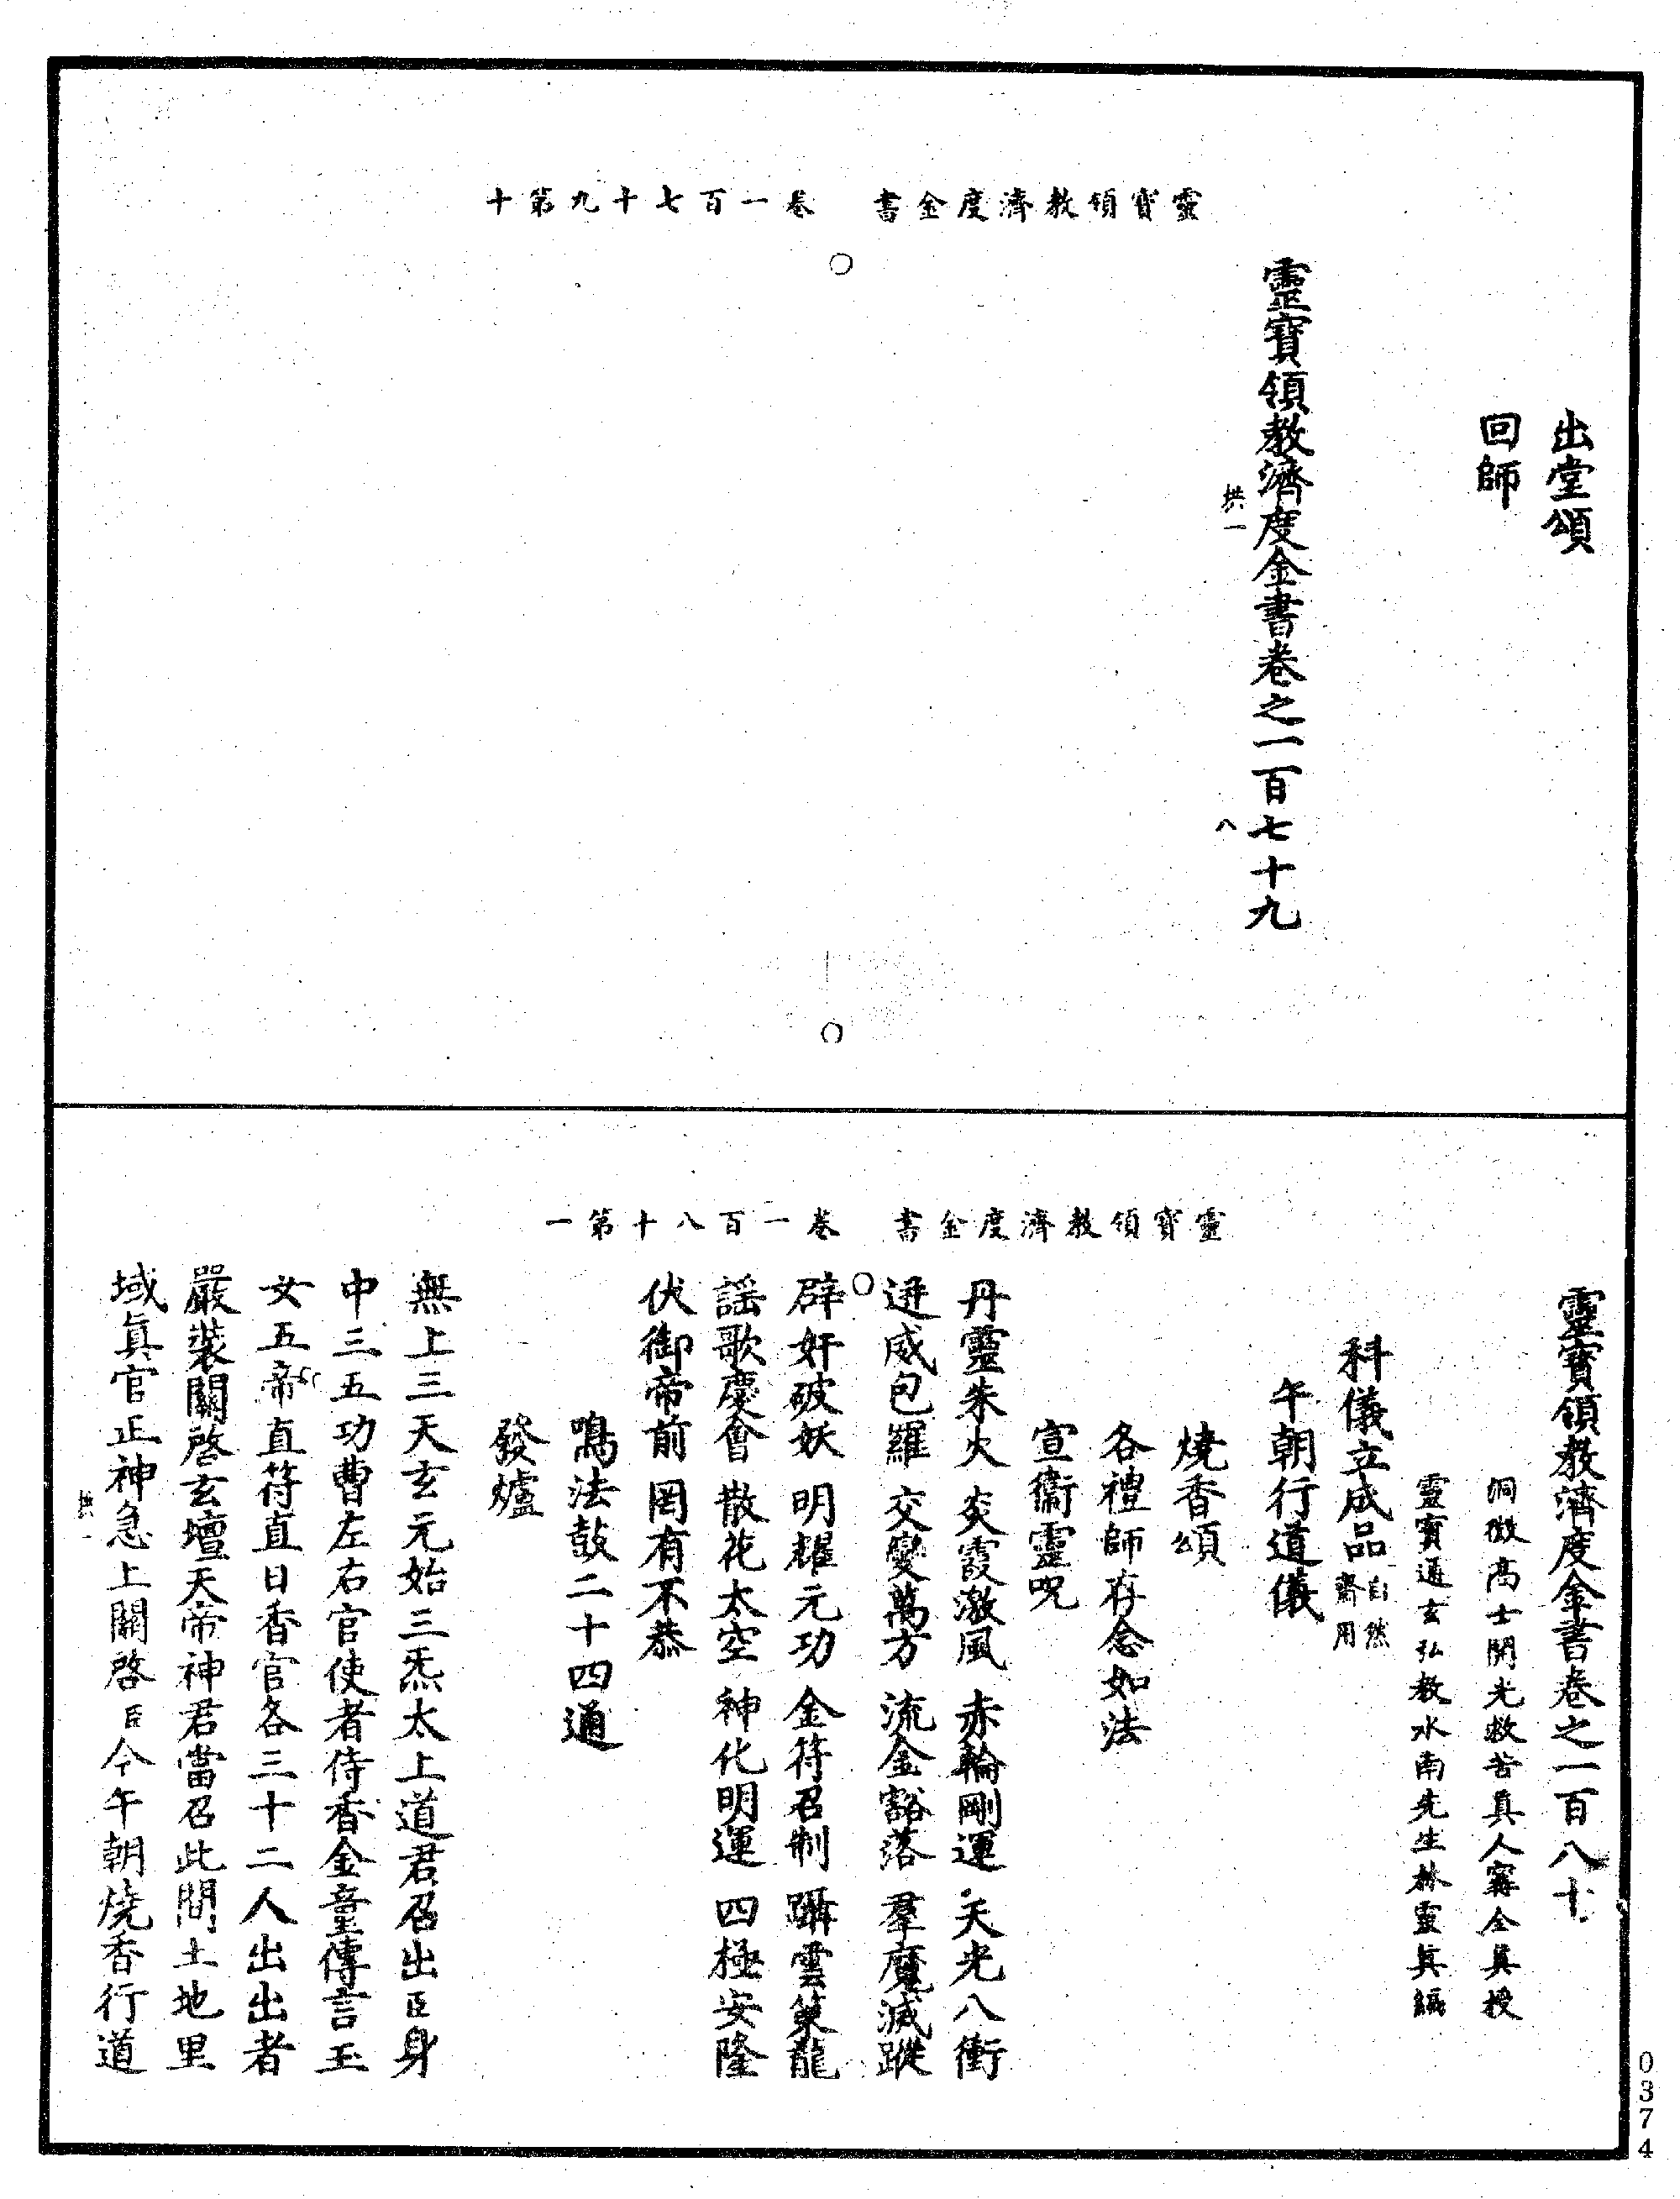 靈寶領教濟度金書　卷一百七十九第十
出堂頌
回師
靈寶領教濟度金書卷之一百七十九
拱一
八
靈寶領教濟度金書　卷一百八十第一
靈寶領教濟度金書卷之一百八十
洞微高士開光救苦真人甯全真授
靈寶通玄弘教水南先生林靈眞編
科儀立成品自然齋用
午朝行道儀
燒香頌
各禮師存念如法
宣衞靈呪
丹靈朱火　炎霞激風　赤輪剛運　天光八衝
迸威包羅　交變萬方　流金豁落　羣魔滅蹤
辟奸破妖　明耀元功　金符召制　躡雲策龍
謠歌慶會　散花太空　神化明運　四極安隆
伏御帝前　罔有不恭
鳴法鼓二十四通
發爐
無上三天玄元始三炁太上道君召出臣身
中三五功曹左右官使者侍香金童傳言玉
女五帝直符直日香官各三十二人出出者
嚴裝關啓玄壇天帝神君當召此間土地里
域眞官正神急上關啓臣今午朝燒香行道
拱一
0374